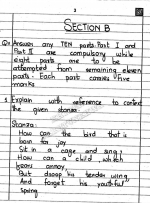 2
SECTION B
Q2 Answer any TEN parts. Part I and
Part II are compulsory while
eight parts are to be
attempted from remaining eleven
parts. Each part carries five
marks
Explain with reference to context
the given stanza:
Stanza:
How can the bird that is
born for joy
Sit in a cage and sing,
How can a child, which
fears annoy,
But droop his tender wing,
And forget his youthful
Spring